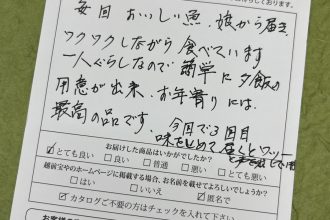 しております。
毎回 おいしい魚、娘から届き、
ワクワクしながら 食べています
一人ぐらしなので 簡単に夕飯の
用意が出来、お年寄りには、
最高の品です。 今回で3回目
味をしめて 届くとワッー
お届けした商品はいかがでしたか?
☑とても良い □良い □普通 □悪い □とても
越前宝やのホームページに掲載する場合、お名前を載せてよろしいでしょうか?
□はい □いいえ ☑匿名で
□カタログご不要の方はチェックを入れて下さい
お客様